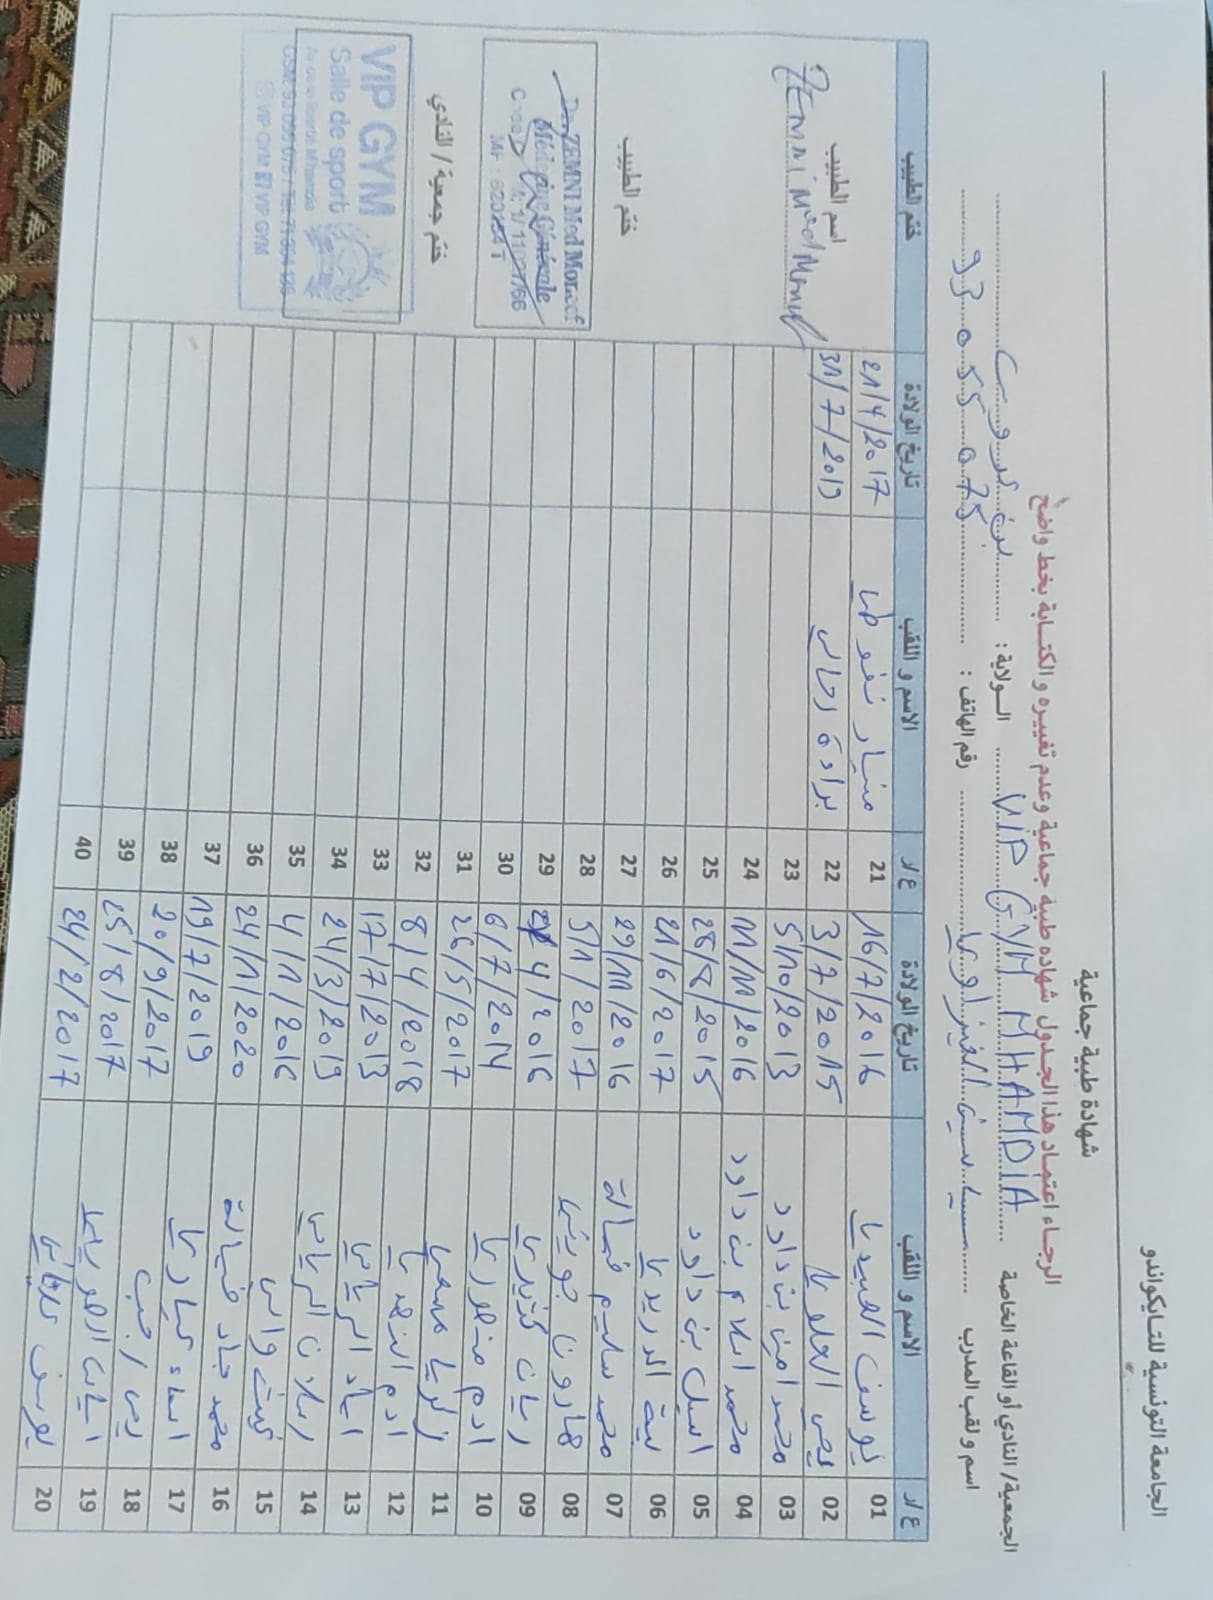 الجامعة التونسية للتايكواندو
شهادة طبية جماعية
الرجاء اعتماد هذا الجدول شهادة طبية جماعية وعدم تغييره و الكتابة بخط واضح
الجمعية/ النادي أو القاعة الخاصة VIP GYM MHAMDIA الولاية : بن عروس
اسم و لقب المدرب رقم الهاتف : 93 055 075
ع/ر الاسم و اللقب تاريخ الولادة ع/ر الاسم و اللقب تاريخ الولادة ختم الطبيب
01 يوسف العبيدي 16/7/2016 21 نغموشي 21/4/2017
02 العلوي 3/7/2015 22 براءة رحالي 31/7/2019
03 محمد امين بن داود 5/10/2013 23
04 محمد اسلام بن داود 11/11/2016 24
05 اسيل بن داود 28/8/2015 25
06 الدريدي 21/6/2017 26
07 محمد سليم 29/11/2016 27
08 هارون جويني 5/1/2017 28
09 ريان 4/2016 29
10 ادم منصوري 6/7/2014 30
11 زكريا 26/5/2017 31
12 ادم 8/4/2018 32
13 اياد الرياحي 17/7/2013 33
14 رسلان الرياحي 24/3/2019 34
15 غيث 4/1/2016 35
16 محمد جاد 24/1/2020 36
17 اسماء عياري 19/7/2019 37
18 20/9/2017 38
19 25/8/2017 39
20 يوسف 24/2/2017 40
اسم الطبيب
ZEMNI Med
ختم الطبيب
Dr. ZEMNI Med Moncef
Médecine Générale
ختم جمعية / النادي
VIP GYM
Salle de sport
VIP GYM VIP GYM